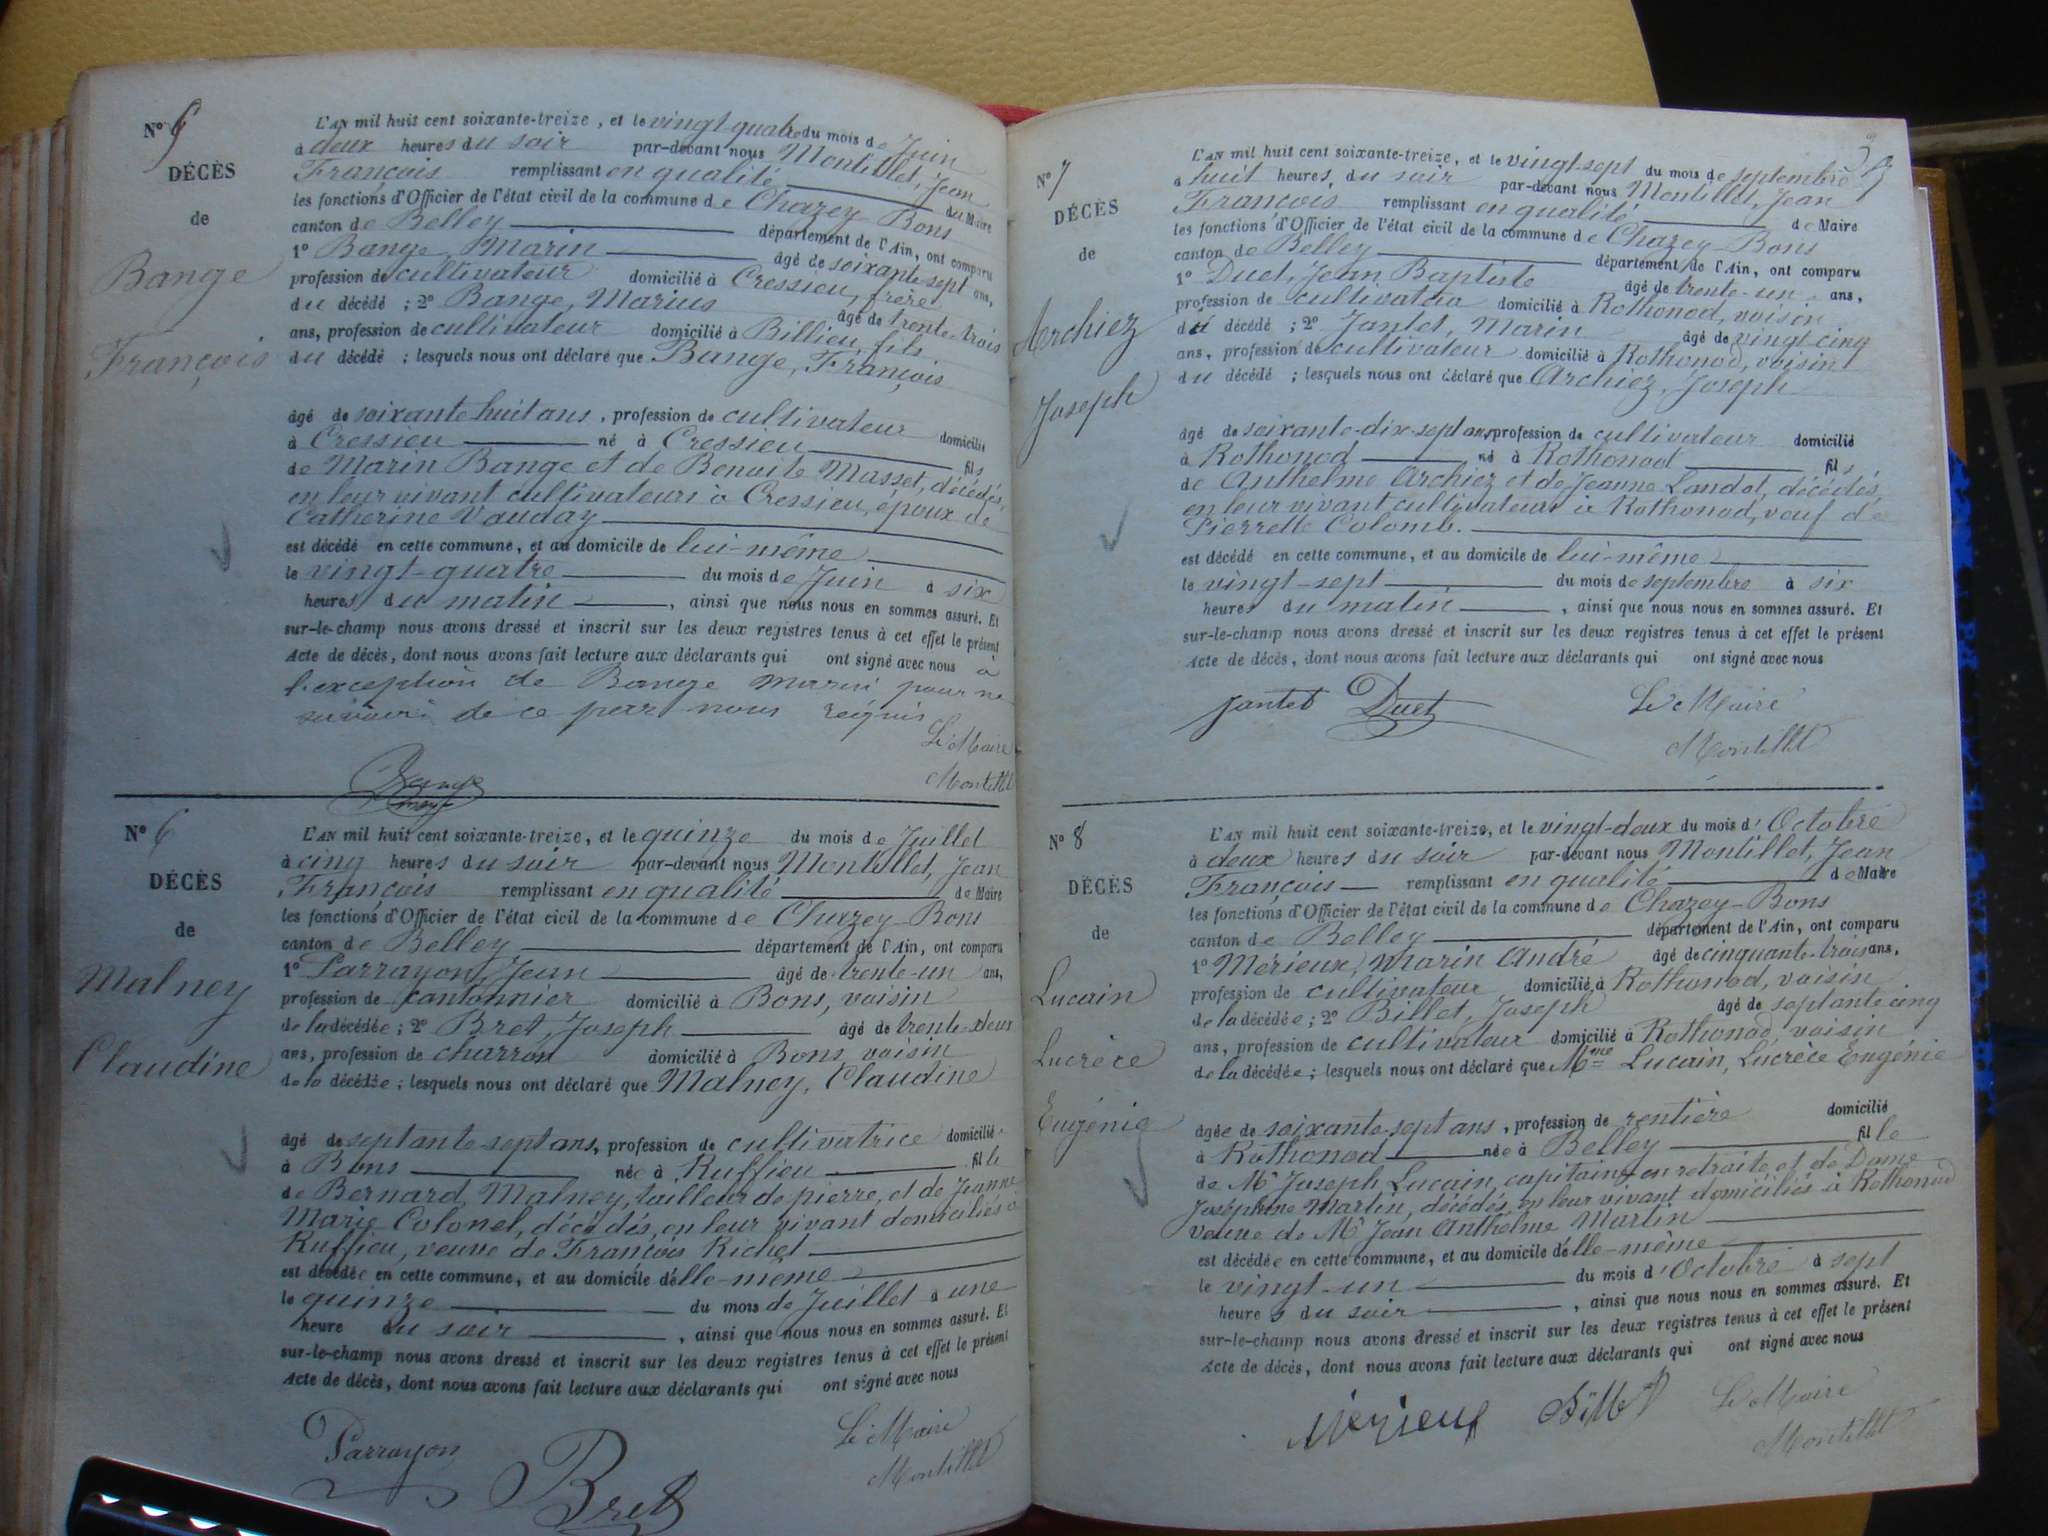 N° 5
DÉCÈS
de
Bange
François
L'AN mil huit cent soixante-treize, et le vingt-quatre du mois de Juin
à deux heures du soir par-devant nous Montillet, Jean
François remplissant en qualité du Maire
les fonctions d'Officier de l'état civil de la commune de Chazey-Bons
canton de Belley département de l'Ain, ont comparu
1° Bange, Marin âgé de soixante sept ans,
profession de cultivateur domicilié à Cressieu, frère
du décédé ; 2° Bange, Marius âgé de trente-trois
ans, profession de cultivateur domicilié à Billieu, fils
du décédé ; lesquels nous ont déclaré que Bange, François
âgé de soixante-huit ans, profession de cultivateur domicilié
à Cressieu né à Cressieu fils
de Marin Bange et de Benoite Masset, décédés,
en leur vivant cultivateurs à Cressieu, époux de
Catherine Vauday
est décédé en cette commune, et au domicile de lui-même
le vingt-quatre du mois de Juin à six
heures du matin, ainsi que nous nous en sommes assuré. Et
sur-le-champ nous avons dressé et inscrit sur les deux registres tenus à cet effet le présent
Acte de décès, dont nous avons fait lecture aux déclarants qui ont signé avec nous à
l'exception de Bange Marin pour ne
savoir de ce par nous requis
Le Maire
Bange Montillet
N° 6
DÉCÈS
de
Malney
Claudine
L'AN mil huit cent soixante-treize, et le quinze du mois de Juillet
à cinq heures du soir par-devant nous Montillet, Jean
François remplissant en qualité de Maire
les fonctions d'Officier de l'état civil de la commune de Chazey-Bons
canton de Belley département de l'Ain, ont comparu
1° Parrayon, Jean âgé de trente-un ans,
profession de cantonnier domicilié à Bons, voisin
de la décédée ; 2° Bret, Joseph âgé de trente-deux
ans, profession de charron domicilié à Bons, voisin
de la décédée ; lesquels nous ont déclaré que Malney, Claudine
âgé de septante-sept ans, profession de cultivatrice domicilié
à Bons née à Ruffieu fille
de Bernard Malney, tailleur de pierre, et de Jeanne
Marie Colonel, décédés, en leur vivant domiciliés à
Ruffieu, veuve de François Richel
est décédée en cette commune, et au domicile d'elle-même
le quinze du mois de Juillet à une
heure du soir, ainsi que nous nous en sommes assuré. Et
sur-le-champ nous avons dressé et inscrit sur les deux registres tenus à cet effet le présent
Acte de décès, dont nous avons fait lecture aux déclarants qui ont signé avec nous
Parrayon Bret Le Maire
Montillet
N° 7
DÉCÈS
de
Archiez
Joseph
L'AN mil huit cent soixante-treize, et le vingt-sept du mois de septembre
à huit heures, du soir par-devant nous Montillet, Jean
François remplissant en qualité de Maire
les fonctions d'Officier de l'état civil de la commune de Chazey-Bons
canton de Belley département de l'Ain, ont comparu
1° Duet, Jean Baptiste âgé de trente-un ans,
profession de cultivateur domicilié à Rothonod, voisin
du décédé ; 2° Jantet, Marin âgé de vingt-cinq
ans, profession de cultivateur domicilié à Rothonod, voisin
du décédé ; lesquels nous ont déclaré que Archiez, Joseph
âgé de soixante-dix-sept ans, profession de cultivateur domicilié
à Rothonod né à Rothonod fils
de Anthelme Archiez et de Jeanne Landot, décédés,
en leur vivant cultivateurs à Rothonod, veuf de
Pierrette Colomb.
est décédé en cette commune, et au domicile de lui-même
le vingt-sept du mois de septembre à six
heures du matin, ainsi que nous nous en sommes assuré. Et
sur-le-champ nous avons dressé et inscrit sur les deux registres tenus à cet effet le présent
Acte de décès, dont nous avons fait lecture aux déclarants qui ont signé avec nous
Jantet Duet Le Maire
Montillet
N° 8
DÉCÈS
de
Lucain
Lucrèce
Eugénie
L'AN mil huit cent soixante-treize, et le vingt-deux du mois d'Octobre
à deux heures du soir par-devant nous Montillet, Jean
François remplissant en qualité de Maire
les fonctions d'Officier de l'état civil de la commune de Chazey-Bons
canton de Belley département de l'Ain, ont comparu
1° Mérieux, Marin André âgé de cinquante-trois ans,
profession de cultivateur domicilié à Rothonod, voisin
de la décédée ; 2° Billet, Joseph âgé de septante cinq
ans, profession de cultivateur domicilié à Rothonod, voisin
de la décédée ; lesquels nous ont déclaré que Mme Lucain, Lucrèce Eugénie
âgée de soixante-sept ans, profession de rentière domicilié
à Rothonod née à Belley fille
de Mr Joseph Lucain, capitaine en retraite, et de Dame
Joséphine Martin, décédés, en leur vivant domiciliés à Rothonod
veuve de Mr Jean Anthelme Martin
est décédée en cette commune, et au domicile d'elle-même
le vingt-un du mois d'Octobre à sept
heures du soir, ainsi que nous nous en sommes assuré. Et
sur-le-champ nous avons dressé et inscrit sur les deux registres tenus à cet effet le présent
Acte de décès, dont nous avons fait lecture aux déclarants qui ont signé avec nous
Billet Le Maire
Montillet